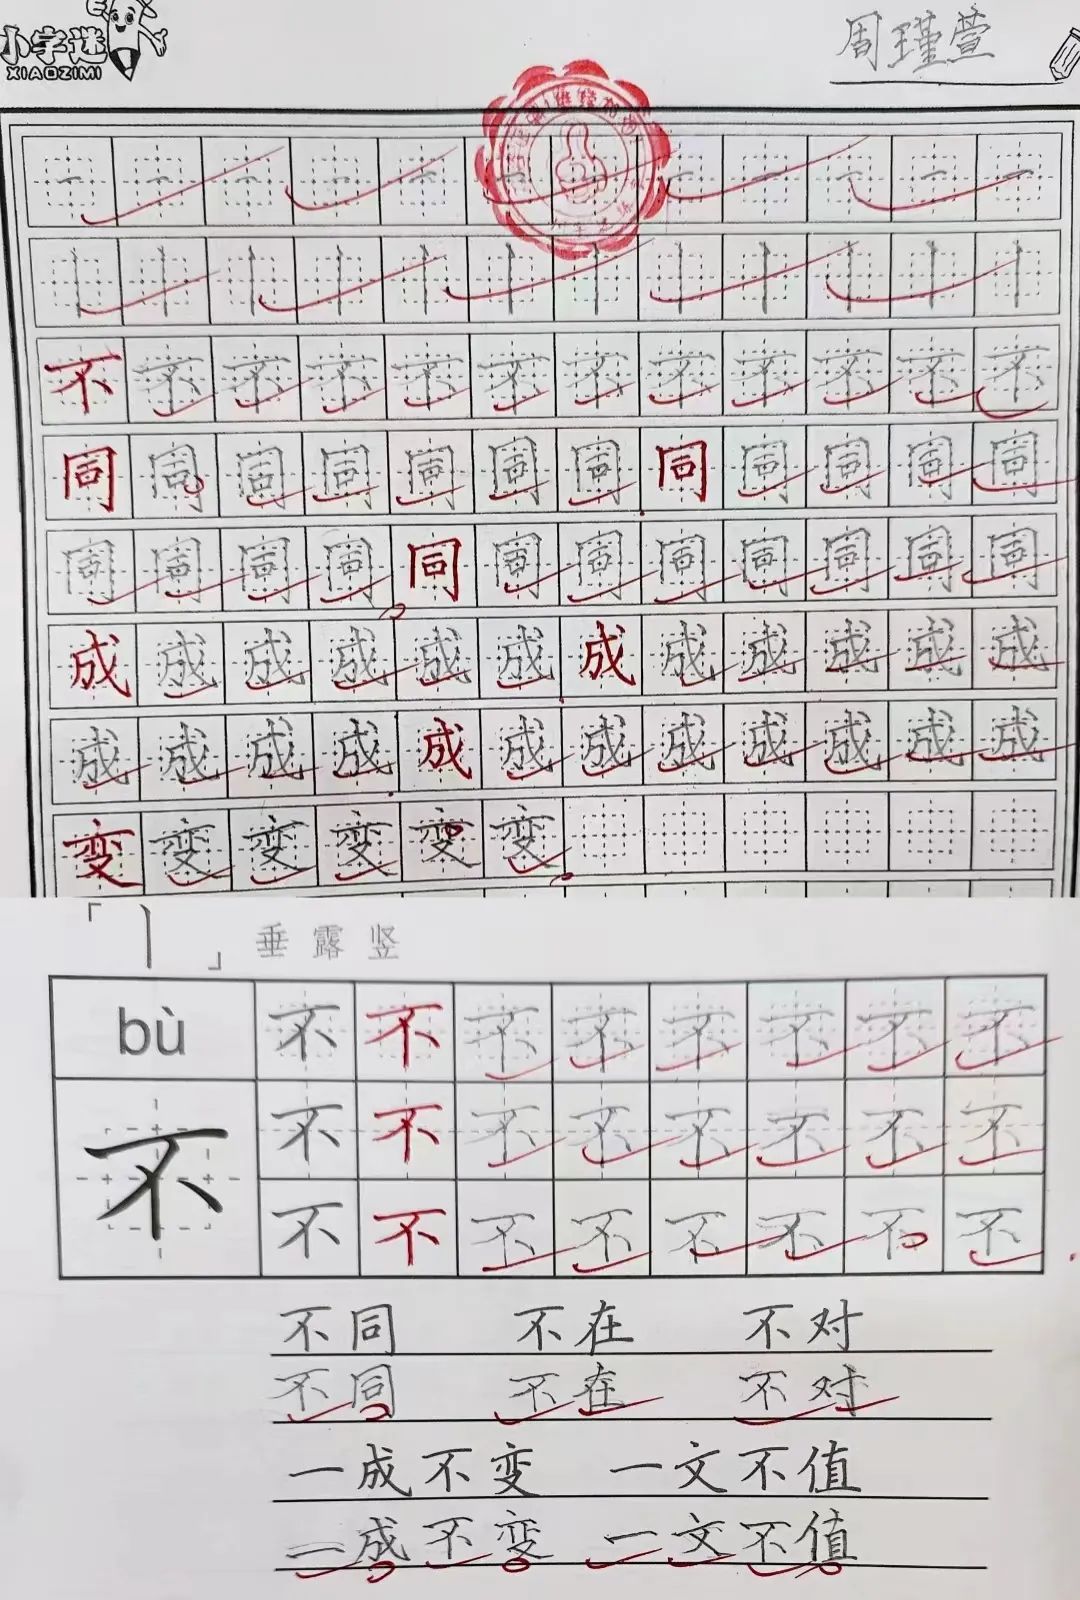 小字迷 周瑾萱
XIAOZIMI
一 一 一 一 一 一 一 一 一 一 一 一
丨 丨 丨 丨 丨 丨 丨 丨 丨 丨 丨 丨
不 不 不 不 不 不 不 不 不 不 不 不
同 同 同 同 同 同 同 同 同 同 同 同
同 同 同 同 同 同 同 同 同 同 同 同
成 成 成 成 成 成 成 成 成 成 成 成
成 成 成 成 成 成 成 成 成 成 成 成
变 变 变 变 变 变
「丨」 垂露竖
bù 不 不 不 不 不 不 不 不
不 不 不 不 不 不 不 不 不
不 不 不 不 不 不 不 不
不同 不在 不对
不同 不在 不对
一成不变 一文不值
一成不变 一文不值